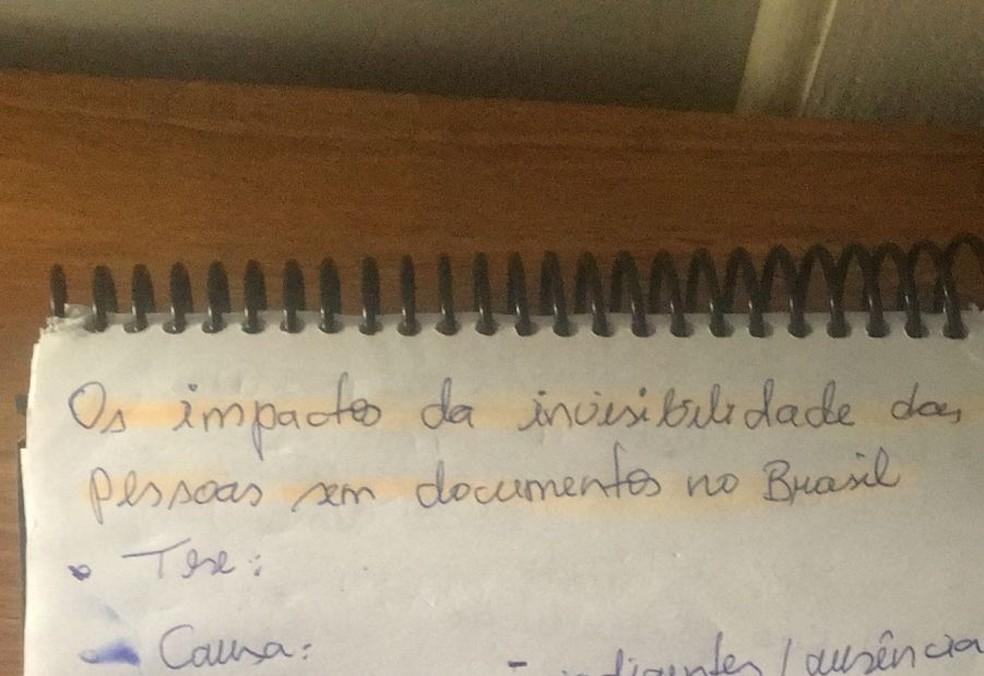 Os impactos da invisibilidade das
pessoas sem documentos no Brasil
• Tese:
Causa:
- indigentes / ausência